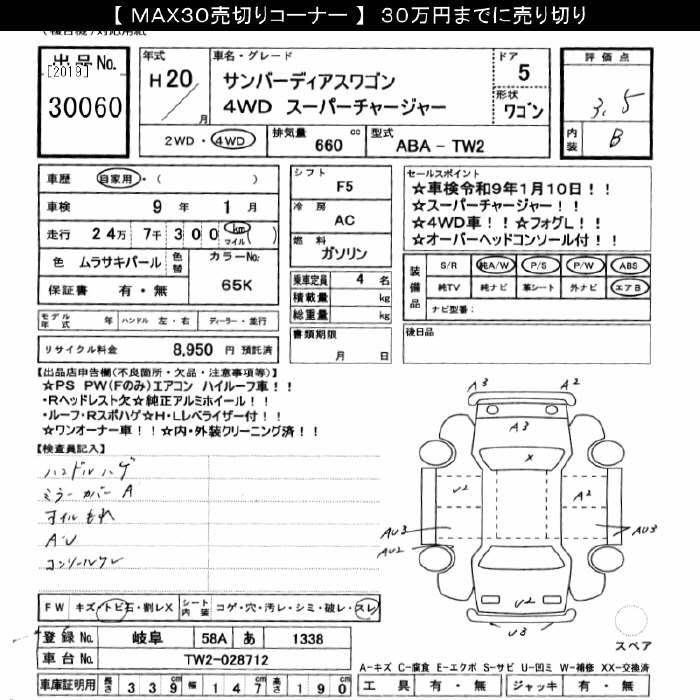 【 MAX30売切りコーナー 】 30万円までに売り切り
出品No.
[2019]
30060
年式
H20
月
車名・グレード
サンバーディアスワゴン
4WD スーパーチャージャー
ドア
5
形状
ワゴン
2WD・4WD
排気量
660 cc
型式
ABA－TW2
評価点
3.5
内装
B
車歴 自家用・( )
車検 9年 1月
走行 24万 7千 300 km マイル ( )
色 ムラサキパール 色替 カラーNo. 65K
保証書 有・無
モデル年式 年 ハンドル 左・右 ディーラー・並行
リサイクル料金 8,950 円 預託済
シフト
F5
冷房
AC
燃料
ガソリン
乗車定員 4 名
積載量 kg
総重量 kg
書類期限
月 日
セールスポイント
☆車検令和9年1月10日！！
☆スーパーチャージャー！！
☆4WD車！！☆フォグL！！
☆オーバーヘッドコンソール付！！
装備品 S/R 純A/W P/S P/W ABS
純TV 純ナビ 革シート 外ナビ エアB
ナビ型番:
後日品
【出品店申告欄(不良箇所・欠品・注意事項等)】
☆PS PW(Fのみ)エアコン ハイルーフ車！！
・Rヘッドレスト欠☆純正アルミホイール！！
・ルーフ・Rスポハゲ☆H・Lレベライザー付！！
☆ワンオーナー車！！☆内・外装クリーニング済！！
【検査員記入】
ハンドルハゲ
ミラーカバー A
オイルもれ
A・U
コンソールワレ
A3 A2
A3
X
U2 A2
AU3 AU3
AU2
U2
U3
スペア
FW キズ・トビ石・割レX シート内装 コゲ・穴・汚レ・シミ・破レ・スレ
登録No. 岐阜 58A あ 1338
車台No. TW2-028712
車庫証明用 長さ 339cm 幅 147cm 高さ 190cm
A－キズ C－腐食 E－エクボ S－サビ U－凹ミ W－補修 XX－交換済
工具 有・無 ジャッキ 有・無